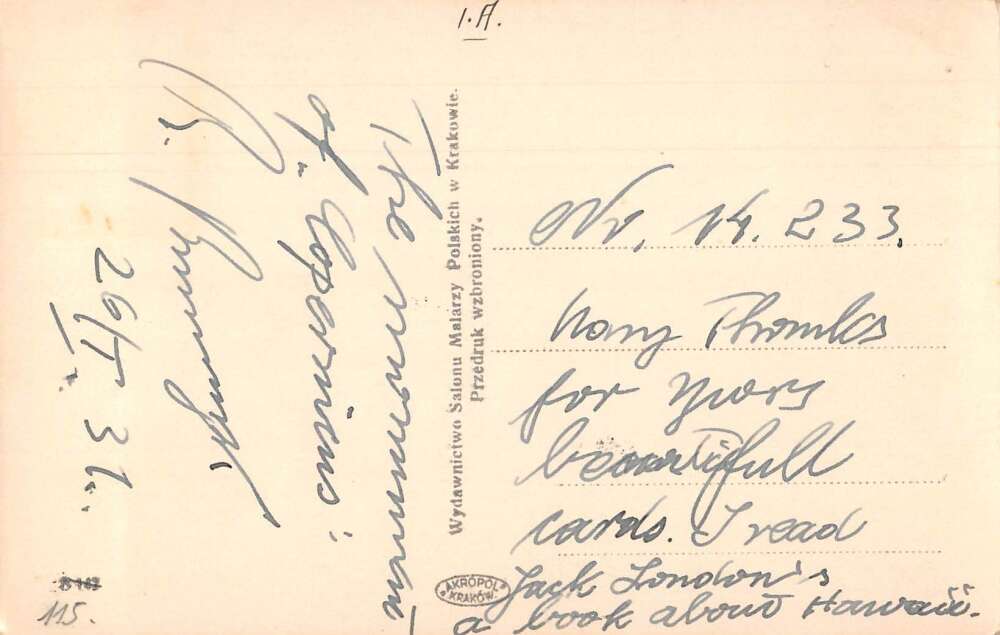 I.A.
The monument
of "Kopernik"
26/I. 31.
Wydawnictwo Salonu Malarzy Polskich w Krakowie.
Przedruk wzbroniony.
Nr. 14.233.
Many Thanks
for yours
beautifull
cards. I read
Jack London's
a book about Hawaii.
AKROPOL
KRAKÓW.
115.